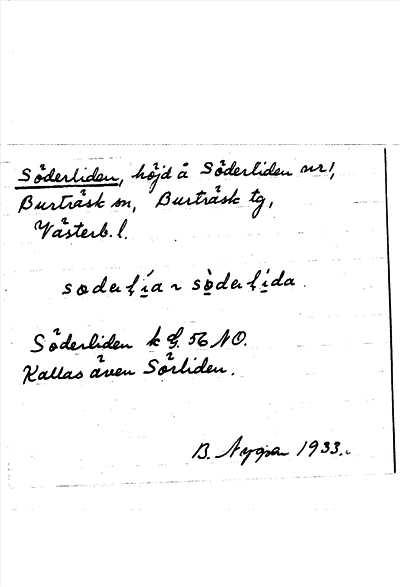 Söderliden, höjd å Söderliden nr 1,
Burträsk sn, Burträsk tg,
Västerb. l.
sodeḷi̱a ~ sò̱deḷi̱da
Söderliden k bl. 56 NO.
Kallas även Sörliden.
B. 1933.